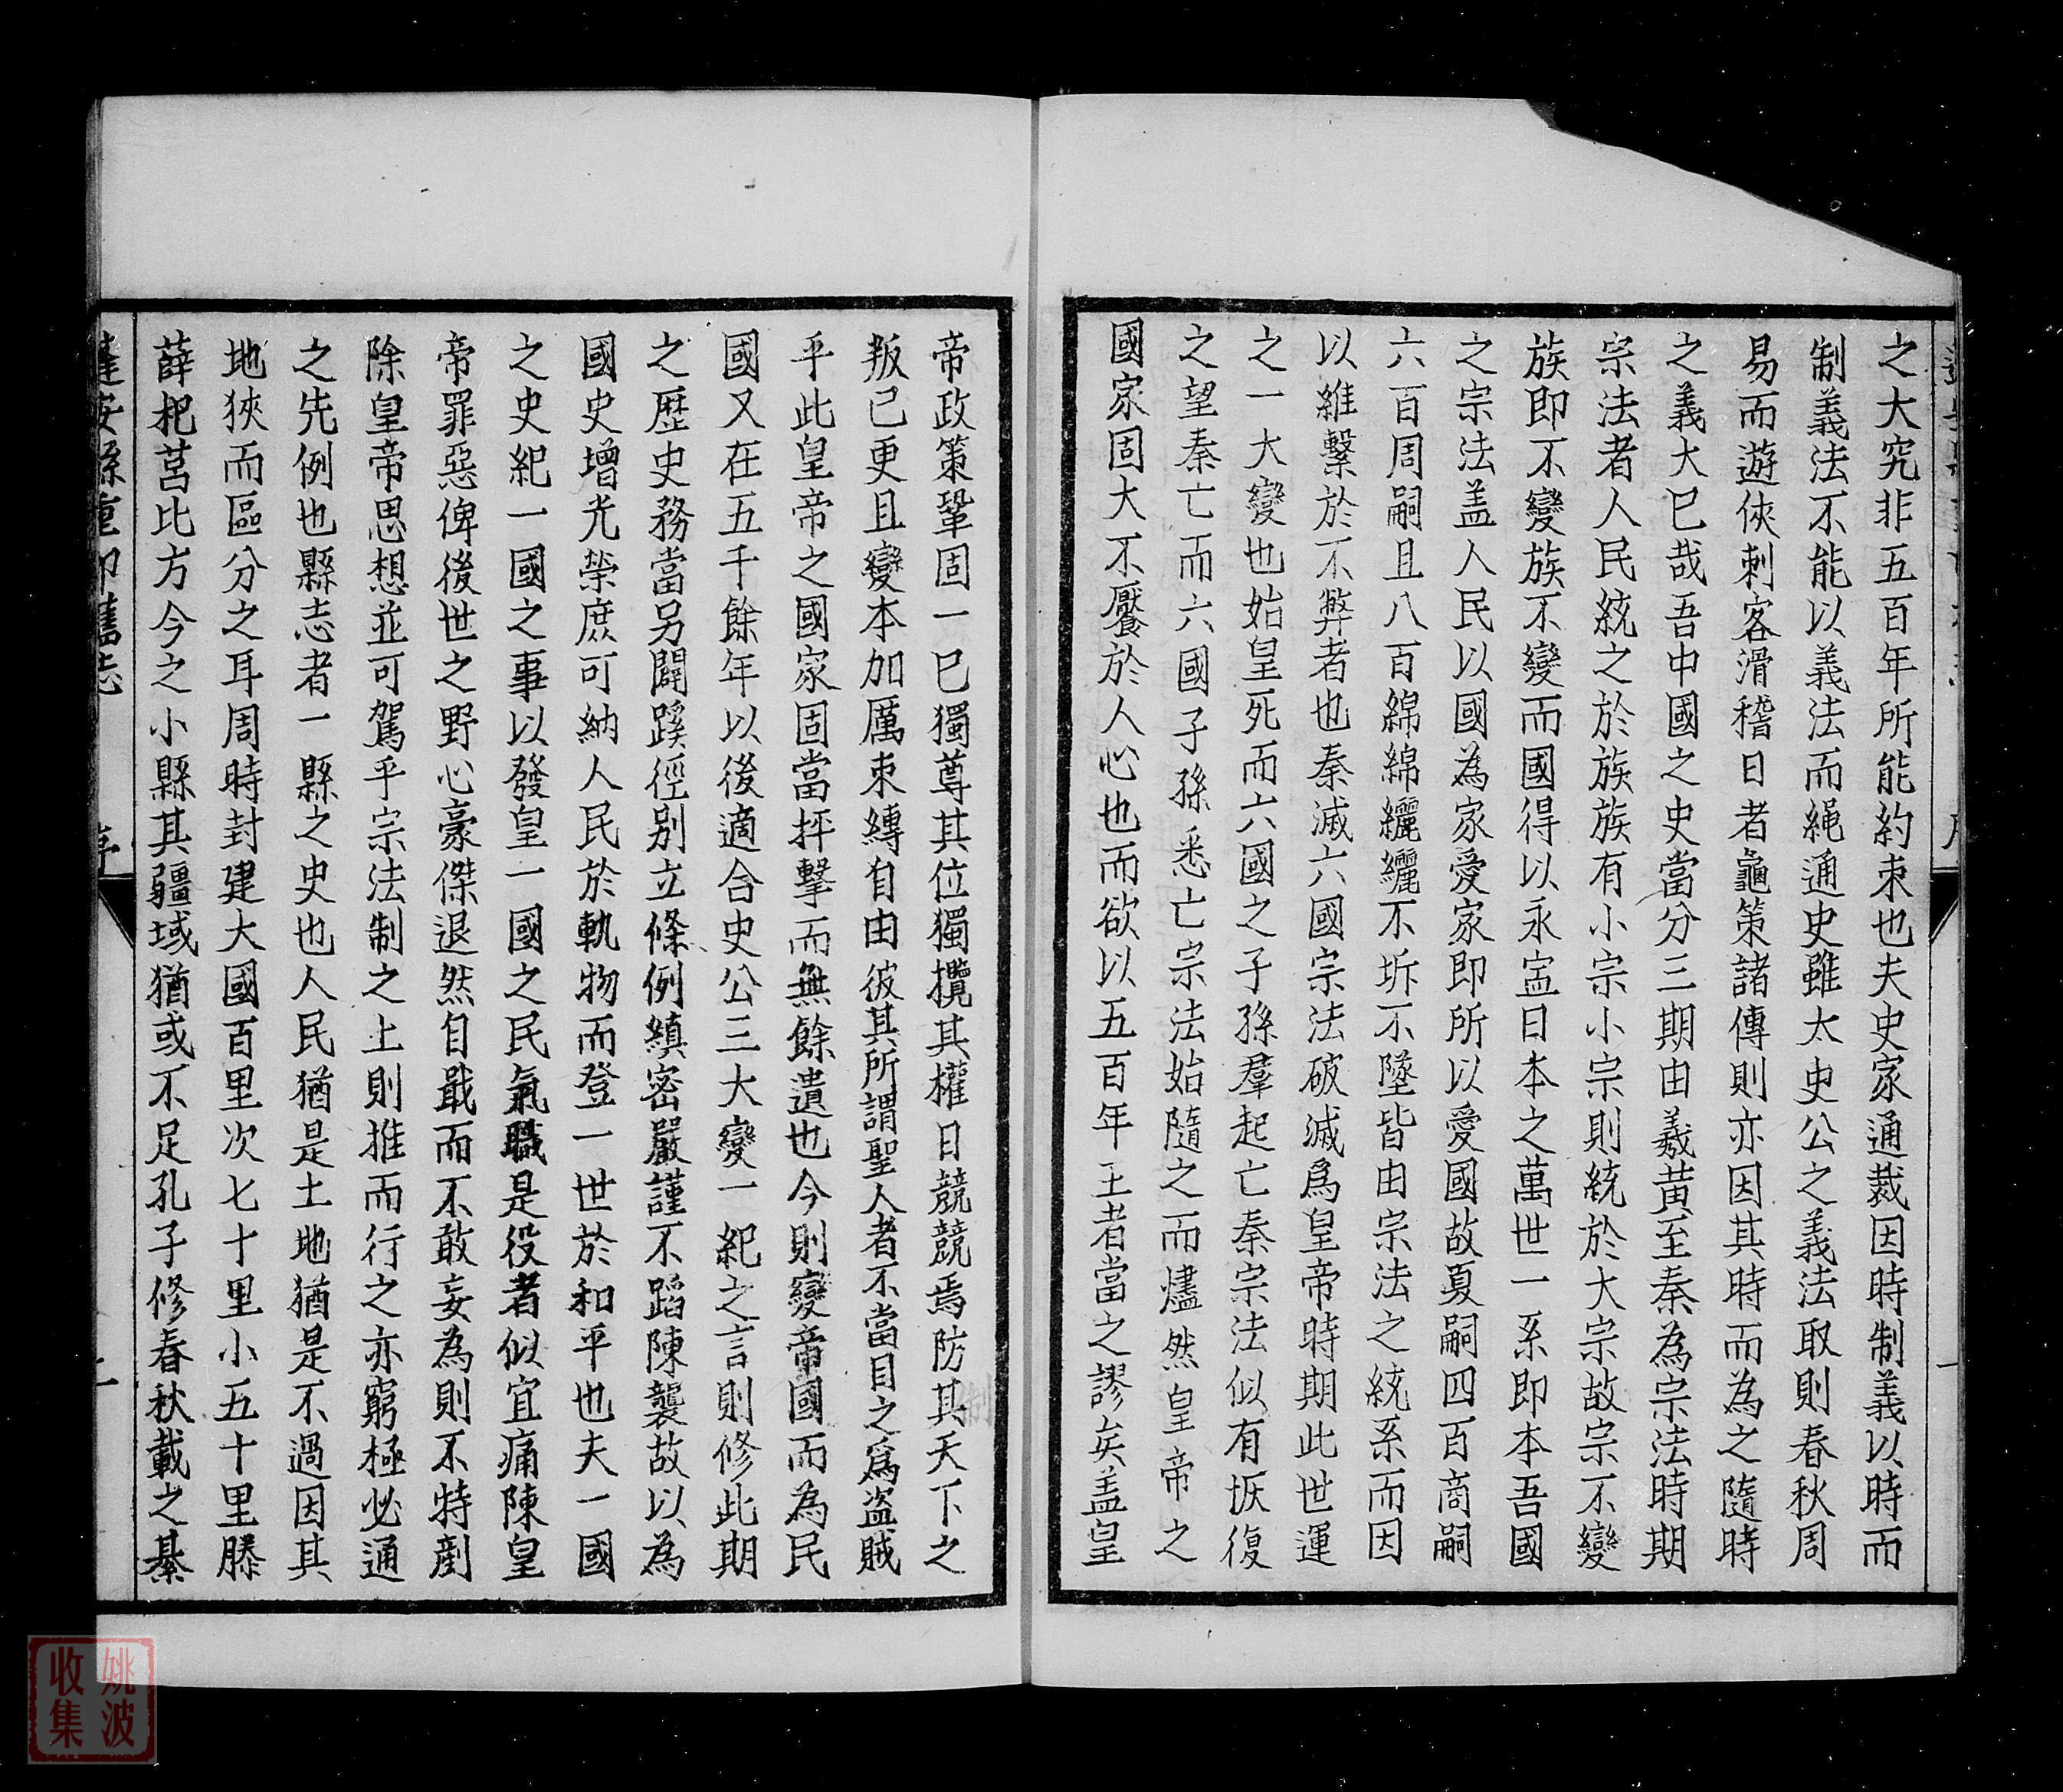 之大究非五百年所能約束也夫史家通裁因時制義以時而
制義法不能以義法而繩通史雖太史公之義法取則春秋周
易而遊俠刺客滑稽日者龜策諸傳則亦因其時而為之隨時
之義大巳哉吾中國之史當分三期由羲黄至秦為宗法時期
宗法者人民統之於族族有小宗小宗則統於大宗故宗不變
族即不變族不變而國得以永寍日本之萬世一系即本吾國
之宗法盖人民以國為家愛家即所以愛國故夏嗣四百商嗣
六百周嗣且八百綿綿纚纚不坼不墜皆由宗法之統系而因
以維繫於不弊者也秦滅六國宗法破滅爲皇帝時期此世運
之一大變也始皇死而六國之子孫羣起亡秦宗法似有恢復
之望秦亡而六國子孫悉亡宗法始隨之而燼然皇帝之
國家固大不饜於人心也而欲以五百年王者當之謬矣盖皇
帝政策鞏固一巳獨尊其位獨攬其權日競競焉防其天下之
叛已更且變本加厲束縛自由彼其所謂聖人者不當目之爲盗賊
乎此皇帝之國家固當抨擊而無餘遺也今則變帝國而為民
國又在五千餘年以後適合史公三大變一紀之言則修此期
之歷史務當另闢蹊徑别立條例縝密嚴謹不蹈陳襲故以為
國史增光榮庶可納人民於軌物而登一世於和平也夫一國
之史紀一國之事以發皇一國之民氣職是役者似宜痛陳皇
帝罪惡俾後世之野心豪傑退然自戢而不敢妄為則不特剷
除皇帝思想並可駕乎宗法制之上則推而行之亦窮極必通
之先例也縣志者一縣之史也人民猶是土地猶是不過因其
地狹而區分之耳周時封建大國百里次七十里小五十里滕
薛杞莒比方今之小縣其疆域猶或不足孔子修春秋載之綦
蓬安縣重印舊志
序
二
姚波
收集